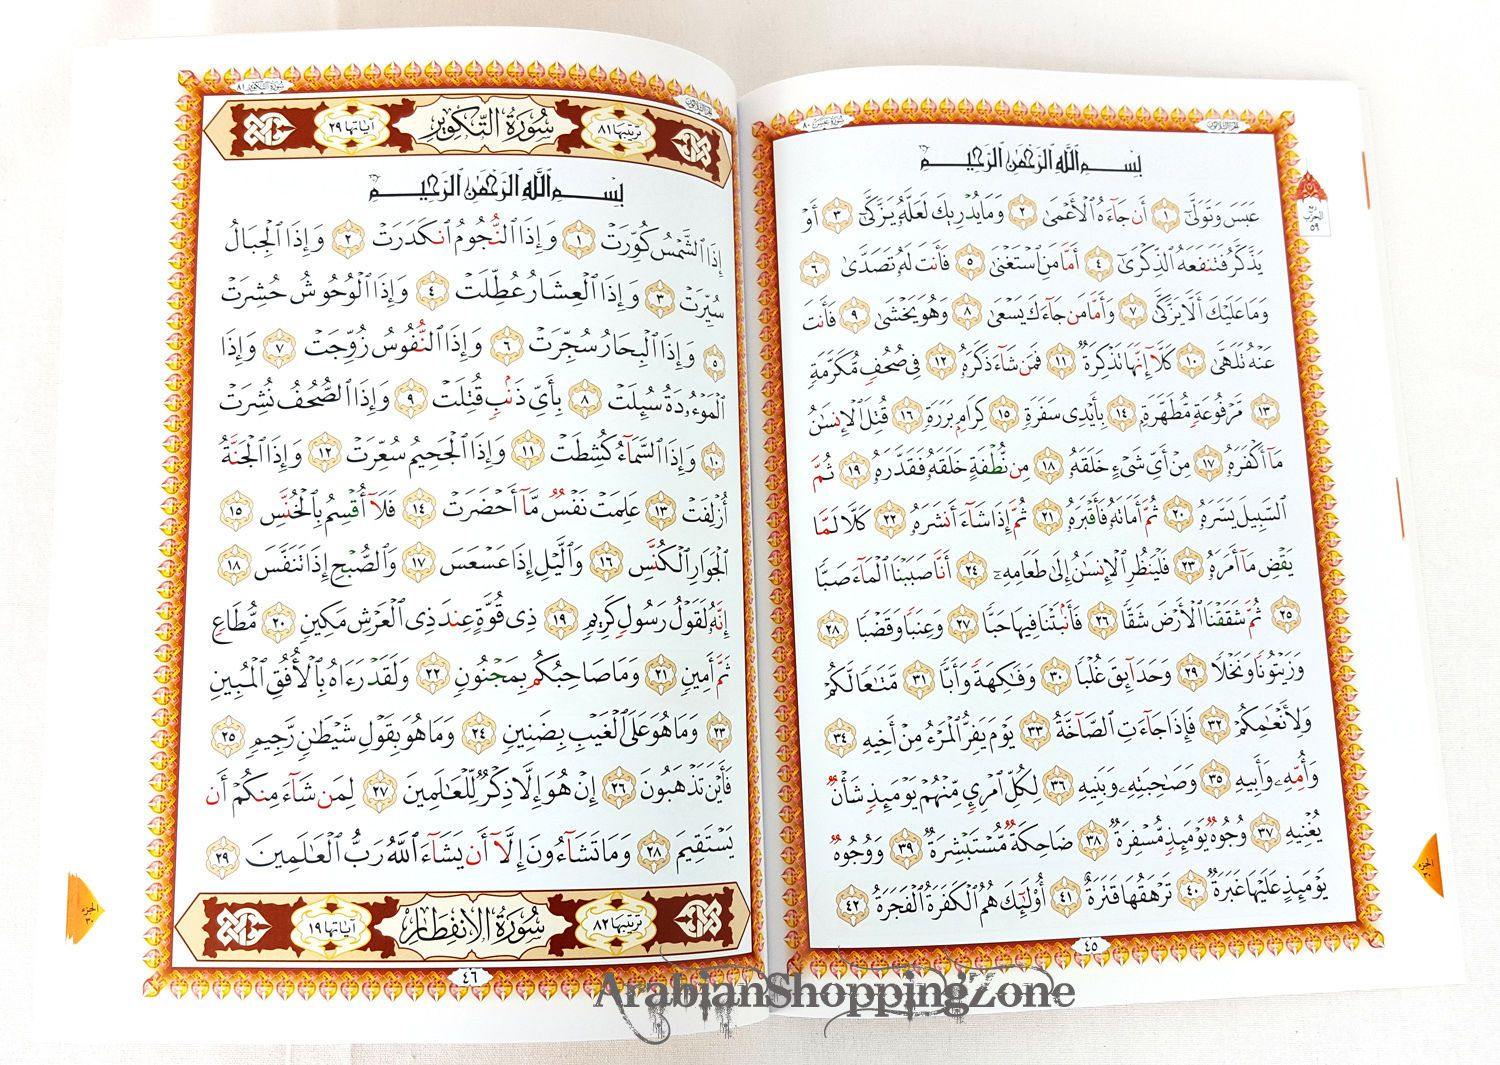 سورة عبس ٨٠
الجزء الثلاثون
بِسْمِ ٱللَّهِ ٱلرَّحْمَٰنِ ٱلرَّحِيمِ
عَبَسَ وَتَوَلَّىٰٓ ١ أَن جَآءَهُ ٱلْأَعْمَىٰ ٢ وَمَا يُدْرِيكَ لَعَلَّهُۥ يَزَّكَّىٰٓ ٣ أَوْ
يَذَّكَّرُ فَتَنفَعَهُ ٱلذِّكْرَىٰٓ ٤ أَمَّا مَنِ ٱسْتَغْنَىٰ ٥ فَأَنتَ لَهُۥ تَصَدَّىٰ ٦
وَمَا عَلَيْكَ أَلَّا يَزَّكَّىٰ ٧ وَأَمَّا مَن جَآءَكَ يَسْعَىٰ ٨ وَهُوَ يَخْشَىٰ ٩ فَأَنتَ
عَنْهُ تَلَهَّىٰ ١٠ كَلَّآ إِنَّهَا تَذْكِرَةٌ ١١ فَمَن شَآءَ ذَكَرَهُۥ ١٢ فِى صُحُفٍ مُّكَرَّمَةٍ
١٣ مَّرْفُوعَةٍ مُّطَهَّرَةٍۭ ١٤ بِأَيْدِى سَفَرَةٍ ١٥ كِرَامٍۭ بَرَرَةٍ ١٦ قُتِلَ ٱلْإِنسَٰنُ
مَآ أَكْفَرَهُۥ ١٧ مِنْ أَىِّ شَىْءٍ خَلَقَهُۥ ١٨ مِن نُّطْفَةٍ خَلَقَهُۥ فَقَدَّرَهُۥ ١٩ ثُمَّ
ٱلسَّبِيلَ يَسَّرَهُۥ ٢٠ ثُمَّ أَمَاتَهُۥ فَأَقْبَرَهُۥ ٢١ ثُمَّ إِذَا شَآءَ أَنشَرَهُۥ ٢٢ كَلَّا لَمَّا
يَقْضِ مَآ أَمَرَهُۥ ٢٣ فَلْيَنظُرِ ٱلْإِنسَٰنُ إِلَىٰ طَعَامِهِۦٓ ٢٤ أَنَّا صَبَبْنَا ٱلْمَآءَ صَبًّا
٢٥ ثُمَّ شَقَقْنَا ٱلْأَرْضَ شَقًّا ٢٦ فَأَنۢبَتْنَا فِيهَا حَبًّا ٢٧ وَعِنَبًا وَقَضْبًا ٢٨
وَزَيْتُونًا وَنَخْلًا ٢٩ وَحَدَآئِقَ غُلْبًا ٣٠ وَفَٰكِهَةً وَأَبًّا ٣١ مَّتَٰعًا لَّكُمْ
وَلِأَنْعَٰمِكُمْ ٣٢ فَإِذَا جَآءَتِ ٱلصَّآخَّةُ ٣٣ يَوْمَ يَفِرُّ ٱلْمَرْءُ مِنْ أَخِيهِ ٣٤
وَأُمِّهِۦ وَأَبِيهِ ٣٥ وَصَٰحِبَتِهِۦ وَبَنِيهِ ٣٦ لِكُلِّ ٱمْرِئٍ مِّنْهُمْ يَوْمَئِذٍ شَأْنٌ
يُغْنِيهِ ٣٧ وُجُوهٌ يَوْمَئِذٍ مُّسْفِرَةٌ ٣٨ ضَاحِكَةٌ مُّسْتَبْشِرَةٌ ٣٩ وَوُجُوهٌ
يَوْمَئِذٍ عَلَيْهَا غَبَرَةٌ ٤٠ تَرْهَقُهَا قَتَرَةٌ ٤١ أُو۟لَٰٓئِكَ هُمُ ٱلْكَفَرَةُ ٱلْفَجَرَةُ ٤٢
٤٥
ربع
الحزب
٥٩
الجزء
٣٠
الجزء الثلاثون
سورة التكوير ٨١
ترتيبها ٨١ سُورَةُ التَّكْوِير آياتها ٢٩
بِسْمِ ٱللَّهِ ٱلرَّحْمَٰنِ ٱلرَّحِيمِ
إِذَا ٱلشَّمْسُ كُوِّرَتْ ١ وَإِذَا ٱلنُّجُومُ ٱنكَدَرَتْ ٢ وَإِذَا ٱلْجِبَالُ
سُيِّرَتْ ٣ وَإِذَا ٱلْعِشَارُ عُطِّلَتْ ٤ وَإِذَا ٱلْوُحُوشُ حُشِرَتْ
٥ وَإِذَا ٱلْبِحَارُ سُجِّرَتْ ٦ وَإِذَا ٱلنُّفُوسُ زُوِّجَتْ ٧ وَإِذَا
ٱلْمَوْءُۥدَةُ سُئِلَتْ ٨ بِأَىِّ ذَنۢبٍ قُتِلَتْ ٩ وَإِذَا ٱلصُّحُفُ نُشِرَتْ
١٠ وَإِذَا ٱلسَّمَآءُ كُشِطَتْ ١١ وَإِذَا ٱلْجَحِيمُ سُعِّرَتْ ١٢ وَإِذَا ٱلْجَنَّةُ
أُزْلِفَتْ ١٣ عَلِمَتْ نَفْسٌ مَّآ أَحْضَرَتْ ١٤ فَلَآ أُقْسِمُ بِٱلْخُنَّسِ ١٥
ٱلْجَوَارِ ٱلْكُنَّسِ ١٦ وَٱلَّيْلِ إِذَا عَسْعَسَ ١٧ وَٱلصُّبْحِ إِذَا تَنَفَّسَ ١٨
إِنَّهُۥ لَقَوْلُ رَسُولٍ كَرِيمٍ ١٩ ذِى قُوَّةٍ عِندَ ذِى ٱلْعَرْشِ مَكِينٍ ٢٠ مُّطَاعٍ
ثَمَّ أَمِينٍ ٢١ وَمَا صَاحِبُكُم بِمَجْنُونٍ ٢٢ وَلَقَدْ رَءَاهُ بِٱلْأُفُقِ ٱلْمُبِينِ
٢٣ وَمَا هُوَ عَلَى ٱلْغَيْبِ بِضَنِينٍ ٢٤ وَمَا هُوَ بِقَوْلِ شَيْطَٰنٍ رَّجِيمٍ ٢٥
فَأَيْنَ تَذْهَبُونَ ٢٦ إِنْ هُوَ إِلَّا ذِكْرٌ لِّلْعَٰلَمِينَ ٢٧ لِمَن شَآءَ مِنكُمْ أَن
يَسْتَقِيمَ ٢٨ وَمَا تَشَآءُونَ إِلَّآ أَن يَشَآءَ ٱللَّهُ رَبُّ ٱلْعَٰلَمِينَ ٢٩
ترتيبها ٨٢ سُورَةُ الانفِطَار آياتها ١٩
٤٦
الجزء
٣٠
ArabianShoppingZone